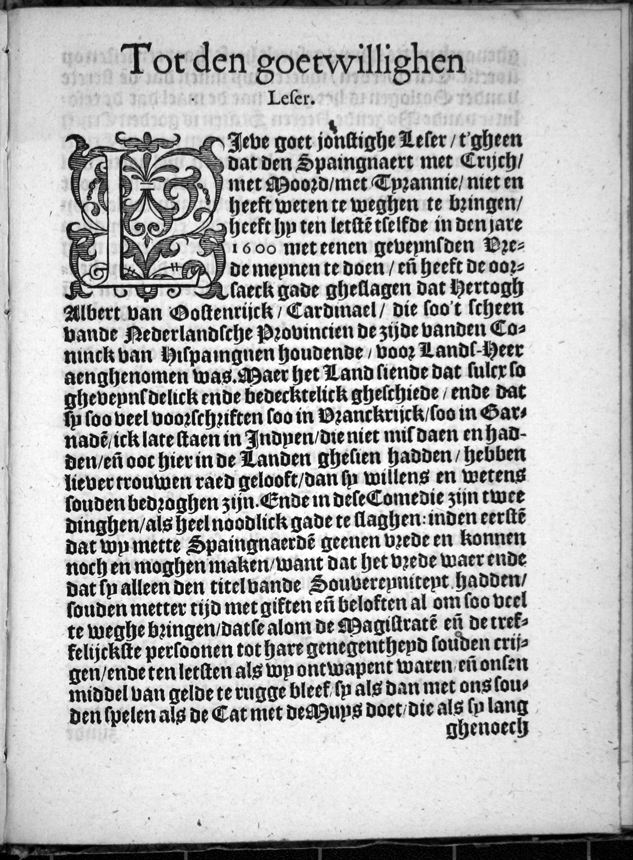 Tot den goetwillighen
Leser.
LJeve goet jonstighe Leser / t'gheen
dat den Spaingnaert met Crijch/
met Moord/met Tyrannie/ niet en
heeft weten te weghen te bringen/
heeft hy ten letstẽ tselfde in den jare
1600 met eenen geveynsden Vre-
de meynen te doen / eñ heeft de oor-
saeck gade gheslagen dat Hertogh
Albert van Oostenrijck / Cardinael / die soo't scheen
vande Nederlandsche Provincien de zijde vanden Co-
ninck van Hispaingnen houdende / voor Lands-Heer
aenghenomen was. Maer het Land siende dat sulcx so
gheveynsdelick ende bedecktelick gheschiede / ende dat
sy soo veel voorschriften soo in Vranckrijck/soo in Gar-
nadẽ/ick late staen in Indyen/die niet misdaen en had-
den/eñ ooc hier in de Landen ghesien hadden/ hebben
liever trouwen raed gelooft/dan sy willens en wetens
souden bedroghen zijn. Ende in dese Comedie zijn twee
dinghen/als heel noodlick gade te slaghen: inden eerstẽ
dat wy mette Spaingnaerdẽ geenen vrede en konnen
noch en moghen maken/want dat het vrede waer ende
dat sy alleen den titel vande Souvereyniteyt hadden/
souden metter tijd met giften eñ beloften al om soo veel
te weghe bringen/datse alom de Magistratẽ eñ de tref-
felijckste persoonen tot hare genegentheyd souden crij-
gen/ende ten letsten als wy ontwapent waren eñ onsen
middel van gelde te rugge bleef/sy als dan met ons sou-
den spelen als de Cat met de Muys doet/die als sy lang
ghenoech